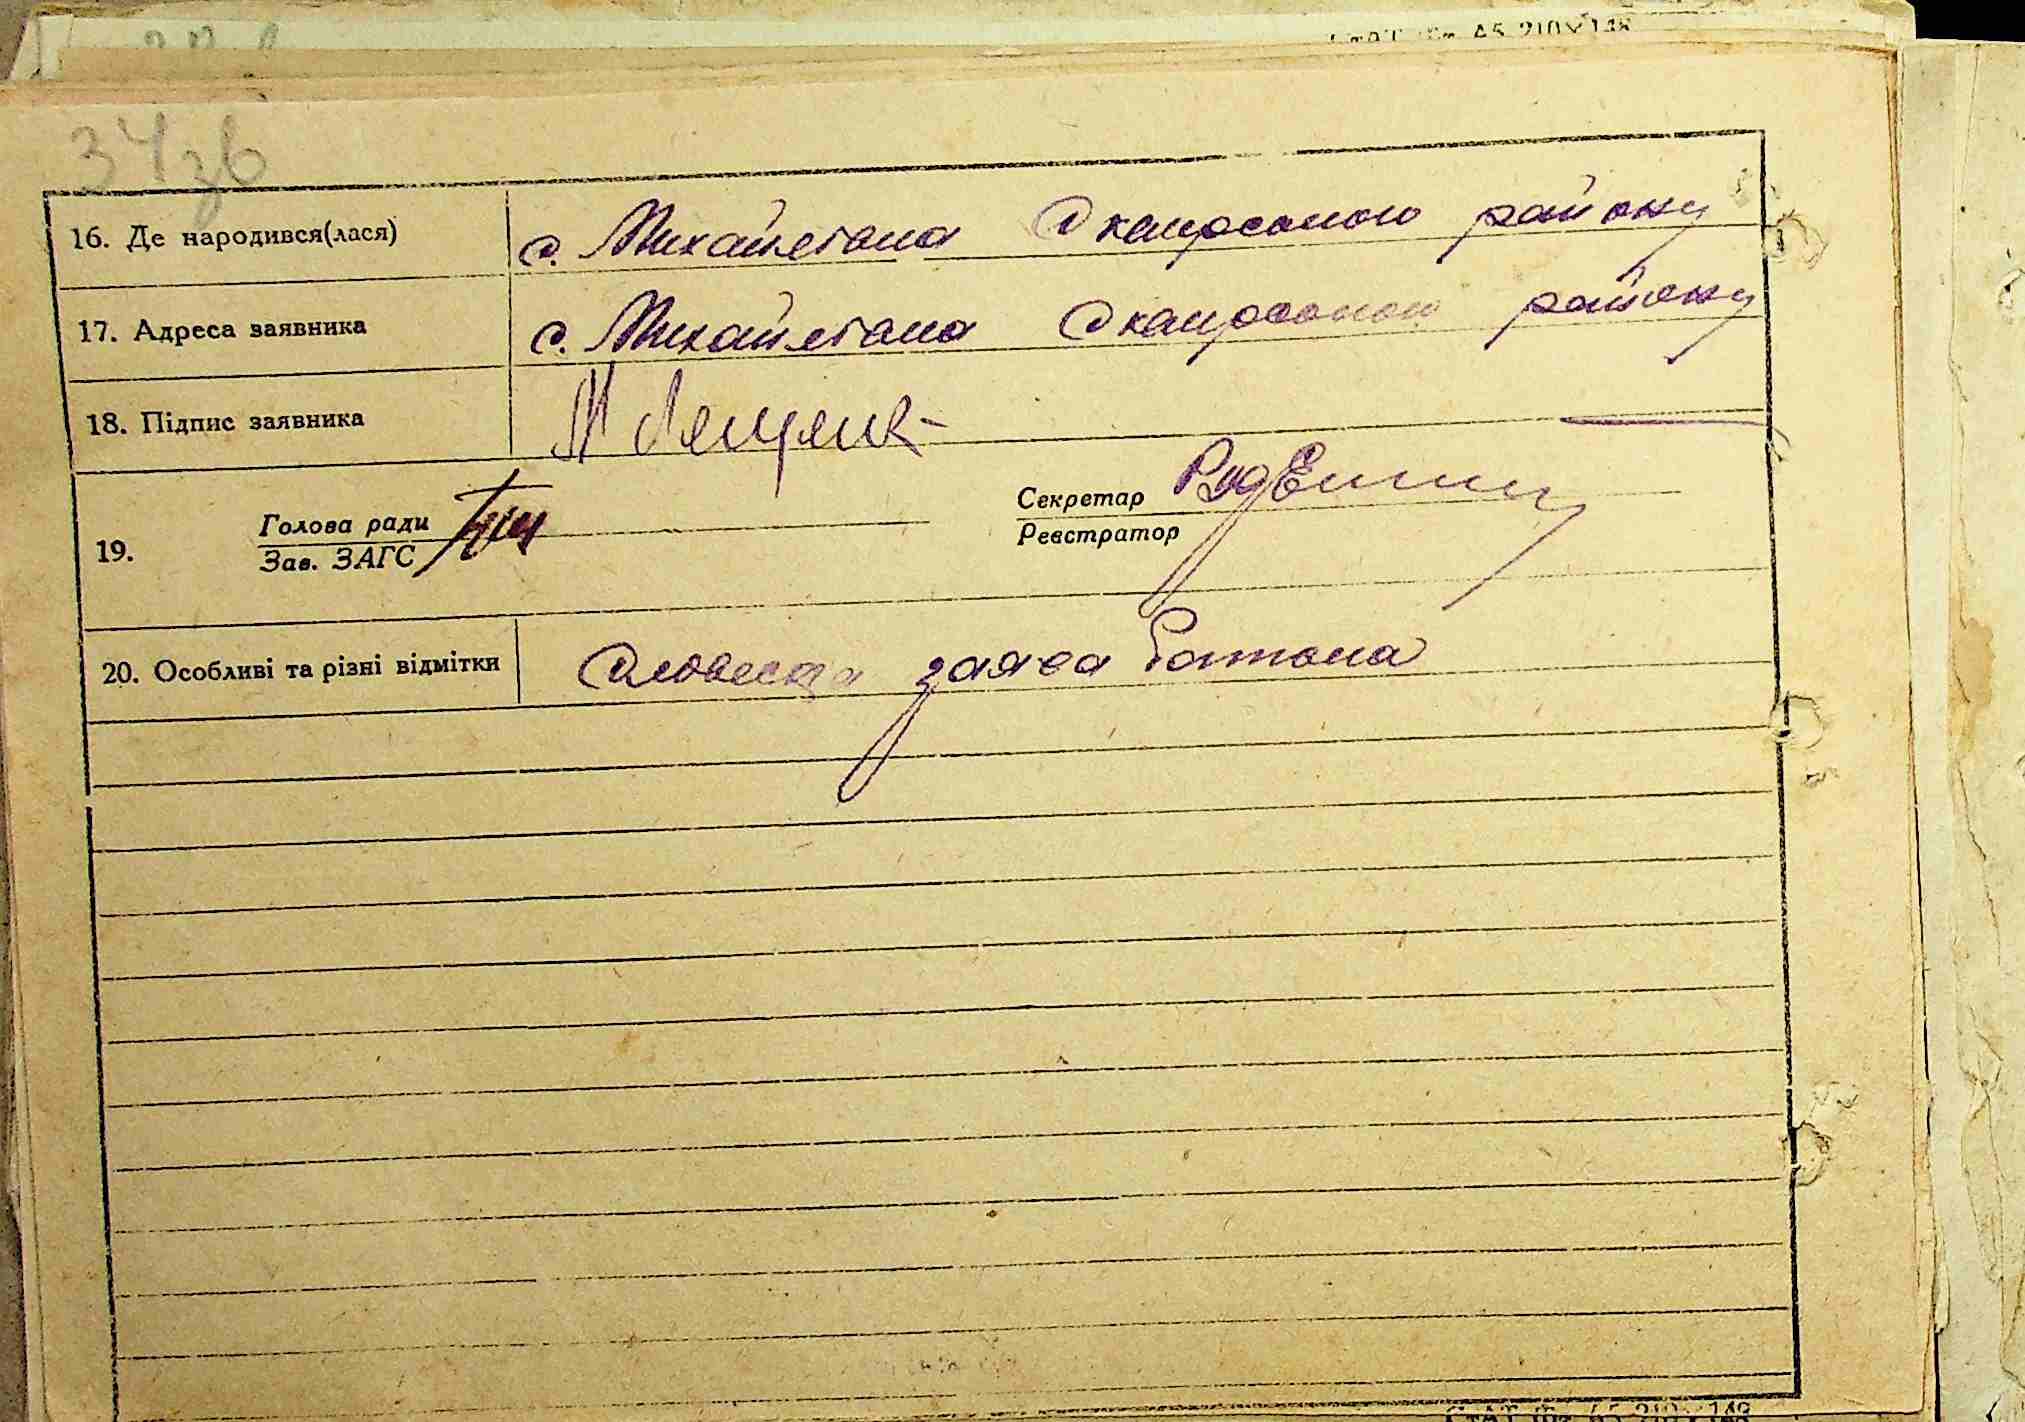 34зв
16. Де народився(лася) с. Михайлівка Скадовського району
17. Адреса заявника с. Михайлівка Скадовського району
18. Підпис заявника
19. Голова ради Секретар
Зав. ЗАГС Реєстратор
20. Особливі та різні відмітки Словесна заява батька